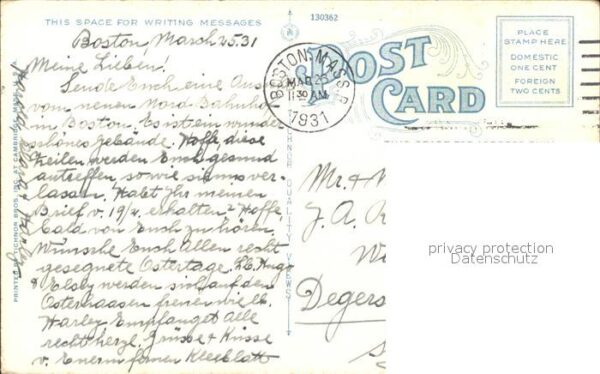 THIS SPACE FOR WRITING MESSAGES
Boston, March 25. 31
Meine Lieben!
Sende Euch eine Ans.
vom neuen Nord Bahnhof
in Boston. Es ist ein wunder
schönes Gebäude. Hoffe, diese
Zeilen werden Euch gesund
antreffen, so wie sie uns ver-
lassen. Habt Ihr meinen
Brief v. 19/2. erhalten? Hoffe
bald von Euch zu hören.
Wünsche Euch Allen recht
gesegnete Ostertage. Lb. Hugo
& Elsby werden sich auf den
Osterhaasen freuen wie lb.
Harley. Empfanget Alle
recht herzl. Grüsse & Küsse
v. Euerm fernen Kleeblatt
130362
POST
CARD
BOSTON, MASS.
MAR 25
11 30 AM
1931
PLACE
STAMP HERE
DOMESTIC
ONE CENT
FOREIGN
TWO CENTS
Mr. &
J. A.
Degers
privacy protection
Datenschutz
QUALITY VIEWS